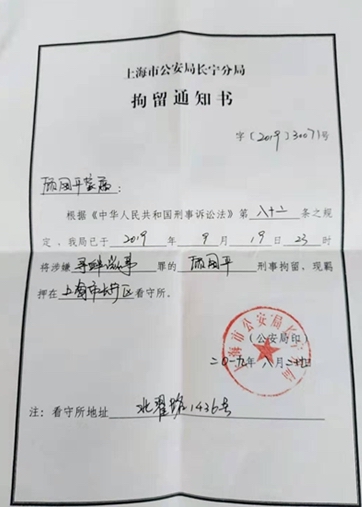 上海市公安局长宁分局
拘留通知书
字〔2019〕30071号
顾国平家属：
根据《中华人民共和国刑事诉讼法》第 八十二 条之规
定，我局已于 2019 年 9 月 19 日 23 时
将涉嫌 寻衅滋事 罪的 顾国平 刑事拘留，现羁
押在上海市长宁区看守所。
上海市公安局长宁分局
（公安局印）
二〇一九年 月 日
注：看守所地址 北翟路1436号